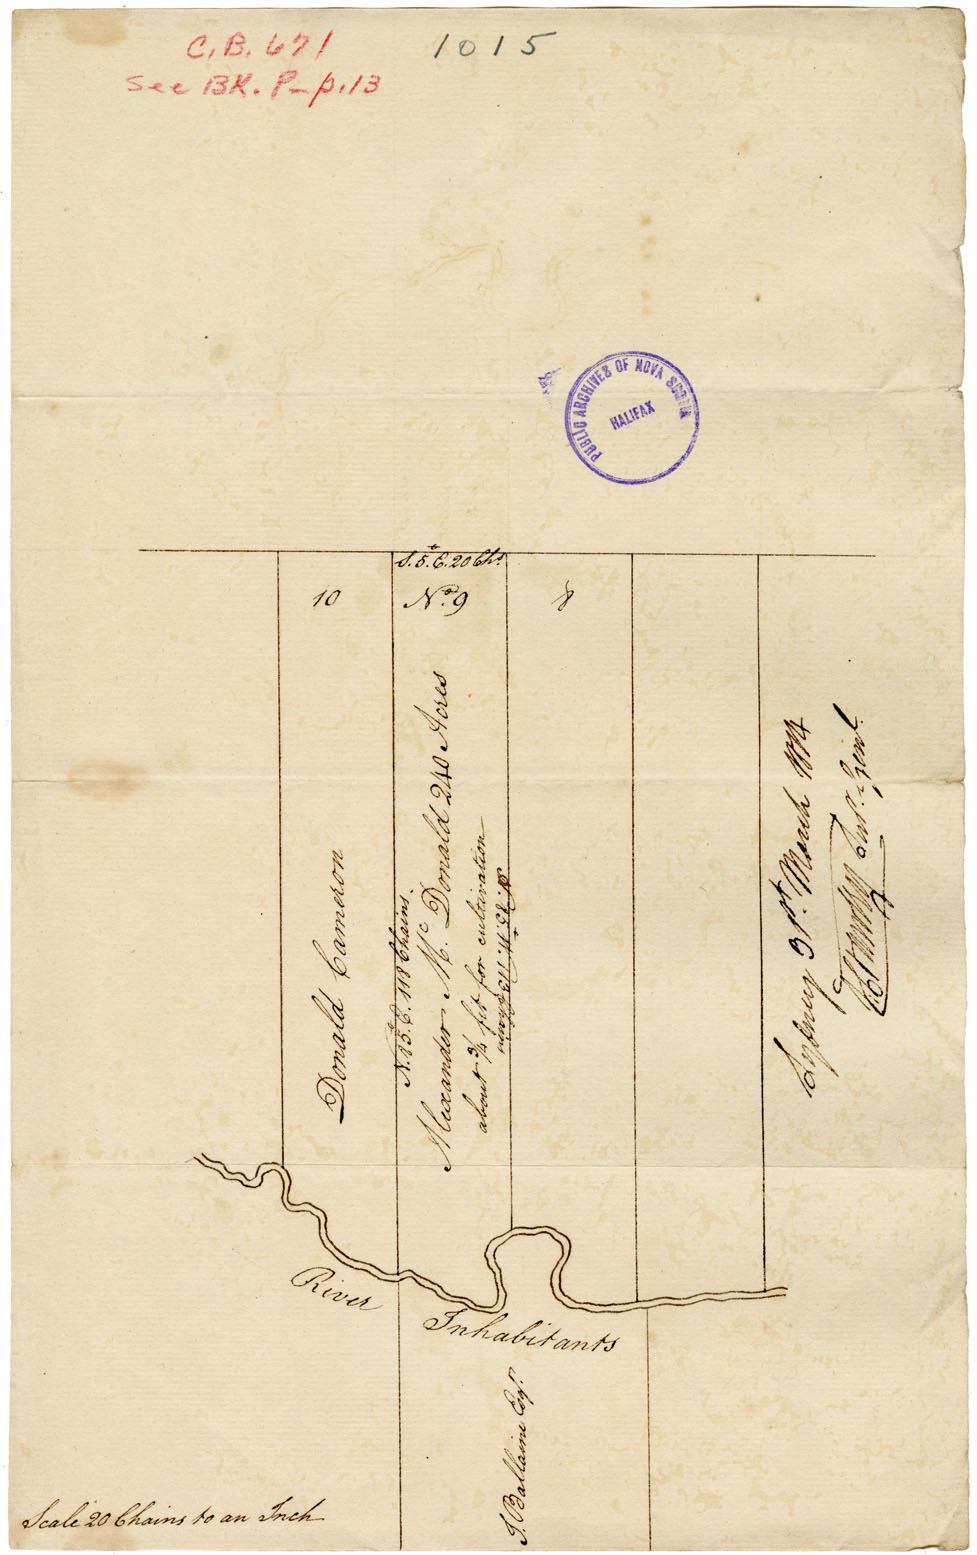 C.B. 671
See BK. P-p.13
1015
PUBLIC ARCHIVES OF NOVA SCOTIA
HALIFAX
S. 5° E. 20 Chs.
10
No. 9
8
Donald Cameron
N. 85. E. 118 Chains.
Alexander Mc. Donald 240 Acres
about 3/4 fit for cultivation
Sydney 31st. March 1814
River
Inhabitants
J. Ballaine Esqr.
Scale 20 Chains to an Inch